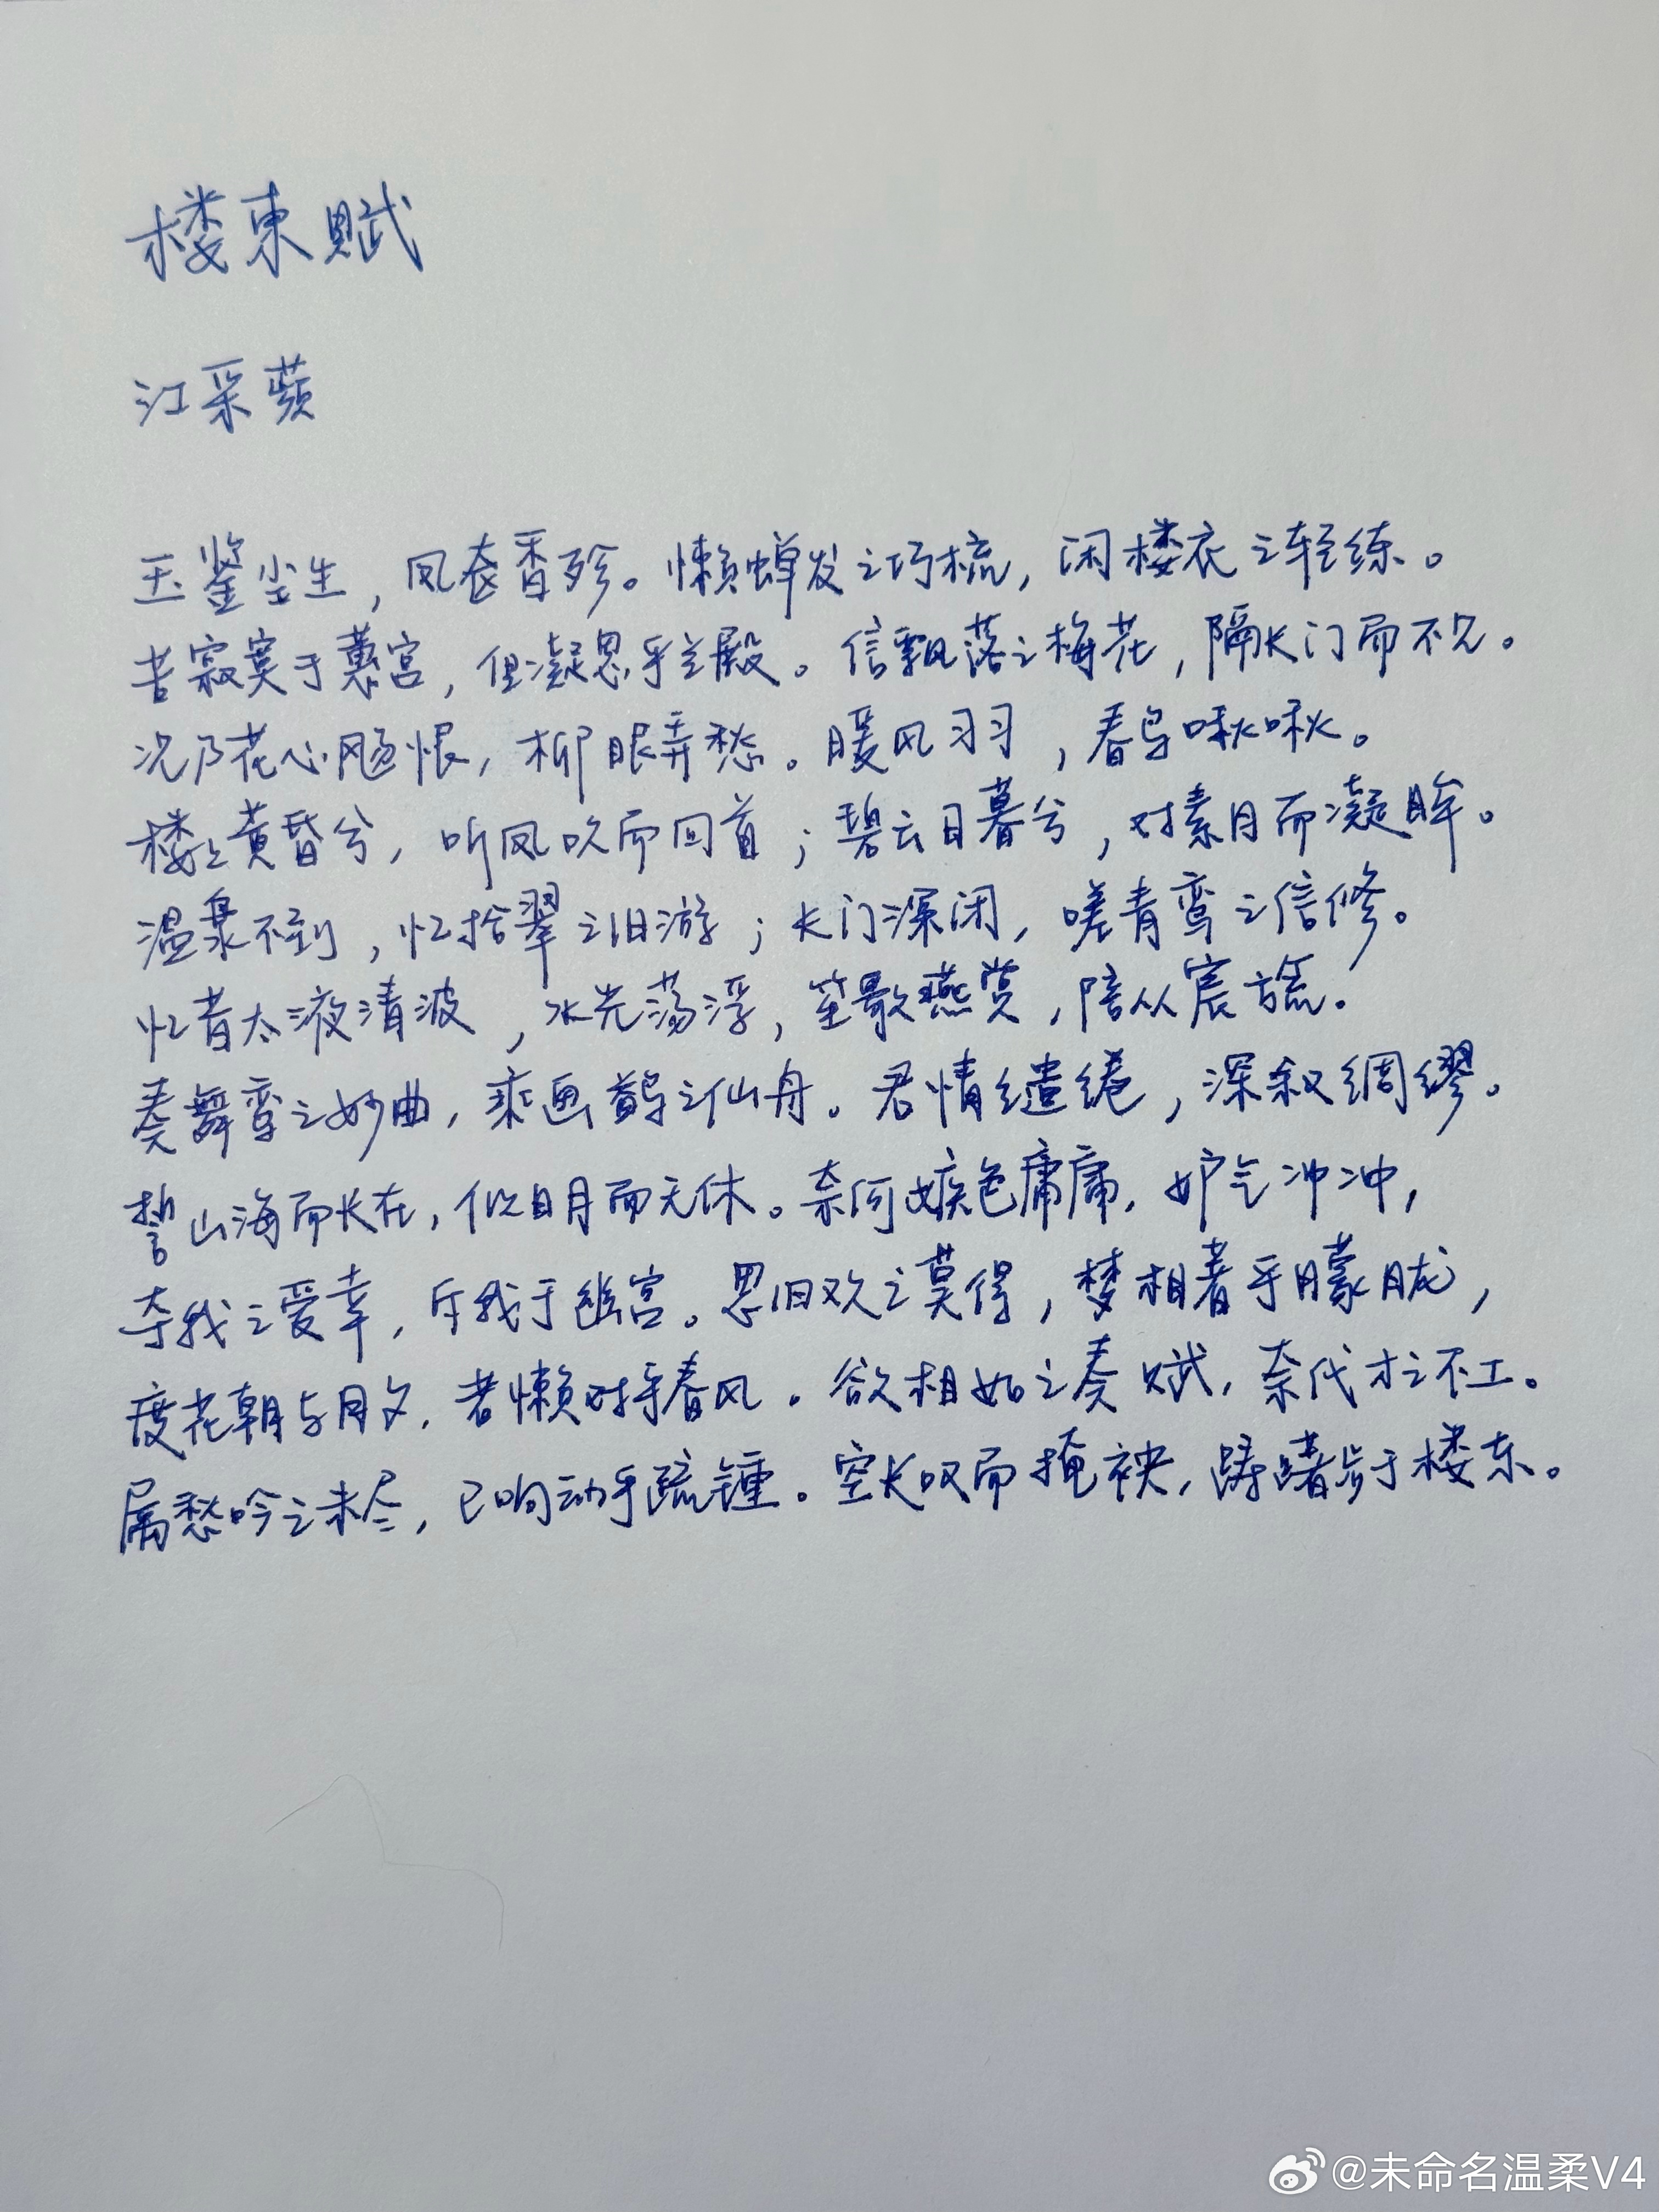 楼东赋
江采蘋
玉鉴尘生，凤奁香殄。懒蝉发之巧梳，闲楼衣之轻练。
苦寂寞于蕙宫，但凝思乎兰殿。信飘落之梅花，隔长门而不见。
况乃花心飏恨，柳眼弄愁。暖风习习，春鸟啾啾。
楼上黄昏兮，听凤吹而回首；碧云日暮兮，对素月而凝眸。
温泉不到，忆拾翠之旧游；长门深闭，嗟青鸾之信修。
忆昔太液清波，水光荡浮，笙歌燕赏，陪从宸旒。
奏舞鸾之妙曲，乘画鹢之仙舟。君情缱绻，深叙绸缪。
誓山海而长在，似日月而无休。奈何嫉色庸庸，妒气冲冲，
夺我之爱幸，斥我于幽宫。思旧欢之莫得，梦相著乎朦胧，
度花朝与月夕，若懒对乎春风。欲相如之奏赋，奈代才之不工。
属愁吟之未尽，已响动乎疏锺。空长叹而掩袂，踌躇步于楼东。
@未命名温柔V4